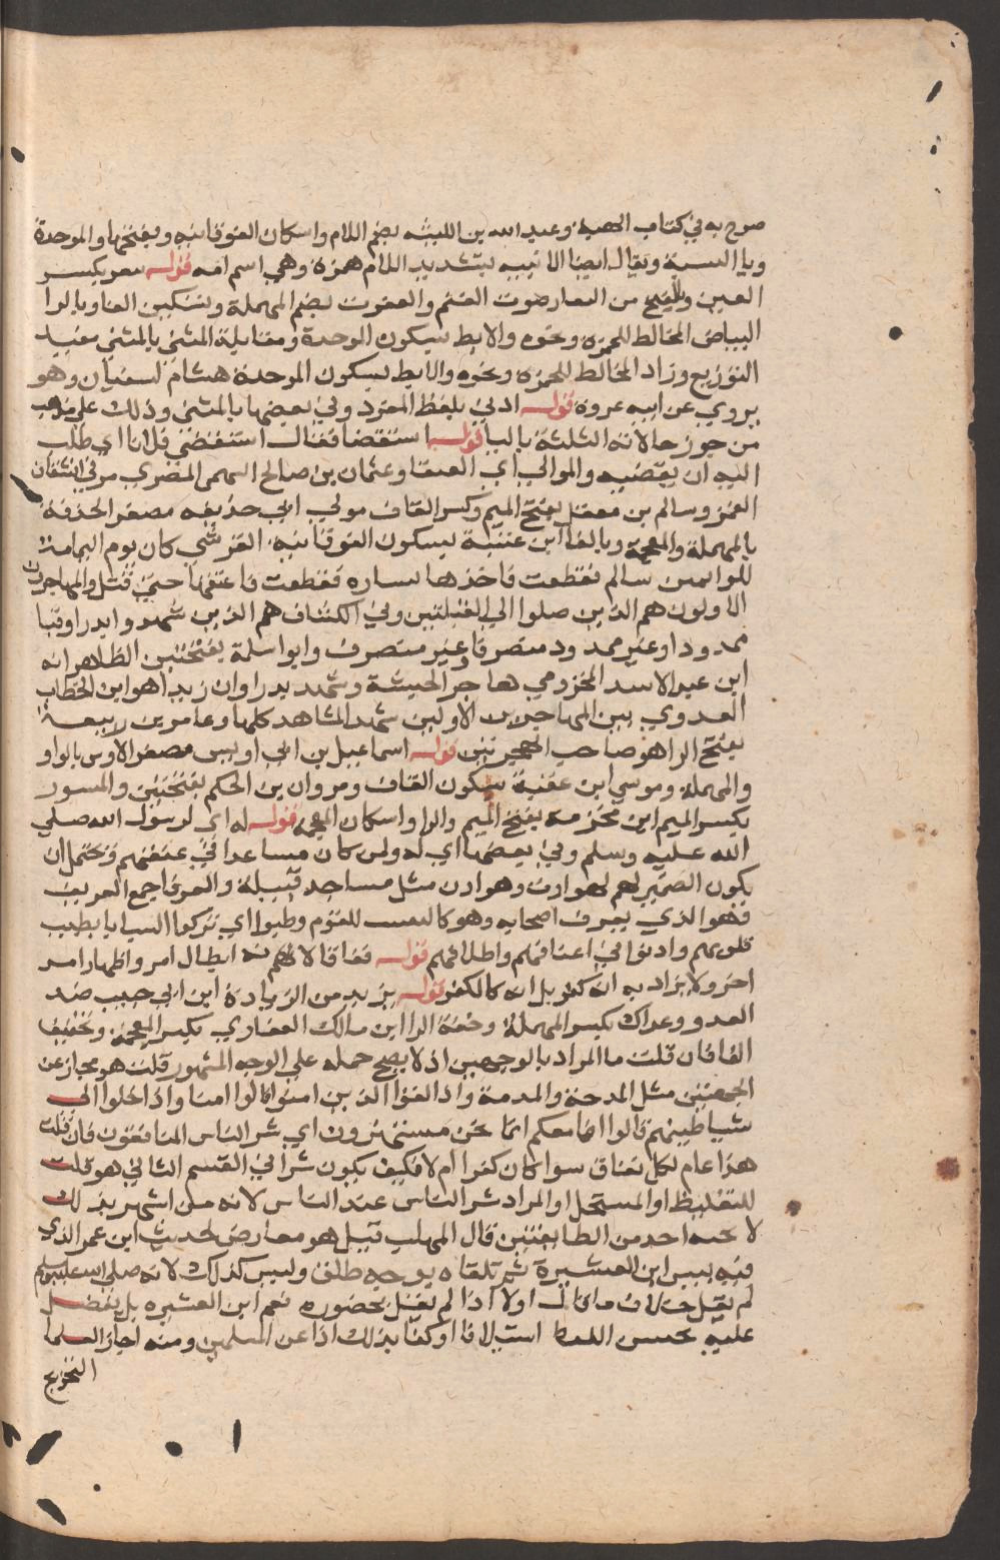 صرح به في كتاب الهبة وعبد الله بن اللتبية بضم اللام واسكان الفوقانية وبفتحها والموحدة
ويا النسبة ويقال ايضا الاتبيه بتشديد اللام همزة وهي اسم امه قوله تيعر بكسر
العين وبالفتح من اليعار صوت الغنم والعفرت بضم المهملة وتسكين الفا وبالرا
البياض المخالط للحمره ونحوه والابط بسكون الموحدة ومقابلة المثنى بالمثنى مفيد
التوزيع وزاد المخالط للحمزه ونحوه والابط بسكون الموحدة هشام لسفيان وهو
يروي عن ابيه عروة قوله ادني بلفظ المفرد وفي بعضها بالمثنى وذلك على مذهب
من جوز حالاته الثلثة باليا قوله استقضا فقال استقضي فلانا اي طلب
اليه ان يقضيه والموالي اي العتقا وعثمان بن صالح السهمي المصري مر في انشقاق
القمر وسالم بن معقل بفتح الميم وكسر القاف مولى ابي حذيفه مصغر الحذفة
بالمهملة والمعجمة وبالفا ابن عتبة بسكون الفوقانية القرشي كان يوم اليمامة
اللوا بيمين سالم فقطعت فاخذها بيساره فقطعت فاعتنقها حتى قتل والمهاجرون
الاولون هم الذين صلوا الى القبلتين وفي الكشاف هم الذين شهدوا بدرا وقبا
ممدودا وغير ممدود متصرفا وغير متصرف وابوا سلمة بفتحتين الظاهر انه
ابن عبد الاسد المخزومي هاجر الحبشة وشهد بدرا وان زيدا هو ابن الخطاب
العدوي بين المهاجرين الاولين شهد المشاهد كلها وعامر بن ربيعة
بفتح الرا هو صاحب الهجرتين قوله اسماعيل بن ابي اويس مصغر الاوس بالواو
والمهملة وموسى ابن عقبة بسكون القاف ومروان بن الحكم بفتحتين والمسور
بكسر الميم ابن مخرمة بفتح الميم والرا واسكان المعجمة قوله له اي لرسول الله صلى
الله عليه وسلم وفي بعضها اي له ولمن كان مساعدا في عتقهم ويحتمل ان
يكون الضمير لهم لهوازن وهوازن مثل مساجد قبيلة والعرفا جمع العريف
فهو الذي يعرف اصحابه وهو كالنقيب للقوم وطيبوا اي تركوا السبايا بطيب
قلوبهم واذنوا في اعتاقهم واطلاقهم قوله نفاقا لانهم فيه ابطال امر واظهار امر
اخر ولا يراد به انه كفر بل انه كالكفر قوله يزيد من الزيادة ابن ابي حبيب ضد
العدو وعراك بكسر المهملة وخفة الرا ابن مالك الغفاري بكسر المعجمة وتخفيف
الفا فان قلت ما المراد بالوجهين اذ لا يصح حمله على الوجه المشهور قلت هو مجاز عن
الجهتين مثل المدحة والمذمة واذا لقوا الذين امنوا قالوا امنا واذا خلوا الى
شياطينهم قالوا انا معكم انما نحن مستهزءون اي شر الناس المنافقون فان قلت
هذا عام لكل نفاق سوا كان كفرا ام لا فكيف يكون شرا في القسم الثاني هو قلت
للتغليظ او المستحل او المراد شر الناس عند الناس لانه من اشتهر بذلك
لا يحبه احد من الطايفتين قال المهلب قيل هو معارض لحديث ابن عمر الذي
فيه بيس ابن العشيرة ثم تلقاه بوجه طلق وليس كذلك لانه صلى الله عليه وسلم
لم يقل خلاف ما قال اولا اذ لم يقل بحضوره نعم ابن العشيره بل يفضل
عليه بحسن اللقا استيلافا او كفا بذلك اذا عن المسلمين ومنه اجاز العلما
التجريح